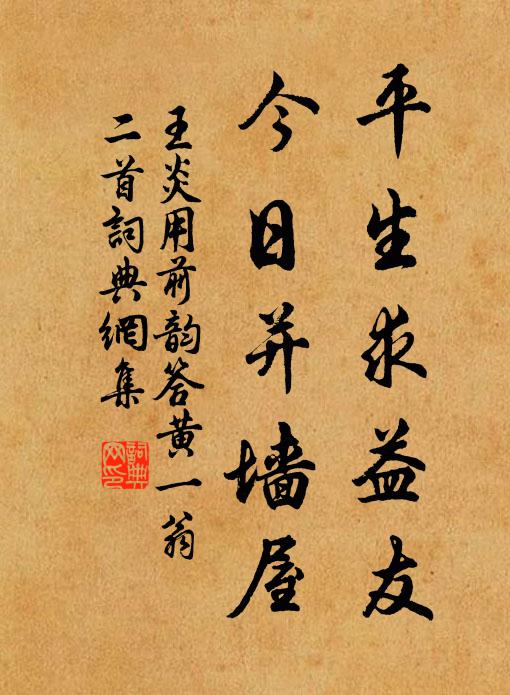 平生求益友
今日并墙屋
王炎用前韵答黄一翁
二首詞典網集
詞典
网印